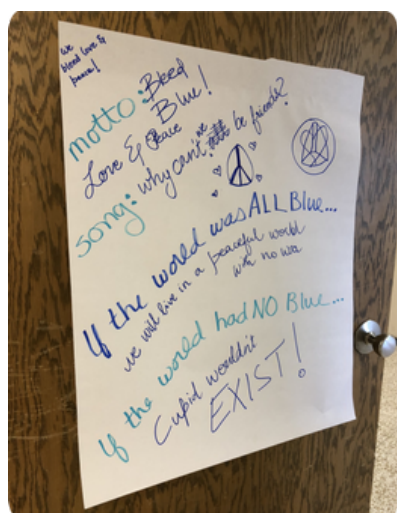 we
bleed love &
peace!
motto: Bleed
Blue!
Love & Peace
song: why can't we be friends?
If the world was ALL Blue...
we will live in a peaceful world
with no wa
If the world had NO Blue...
Cupid wouldn't
EXIST!